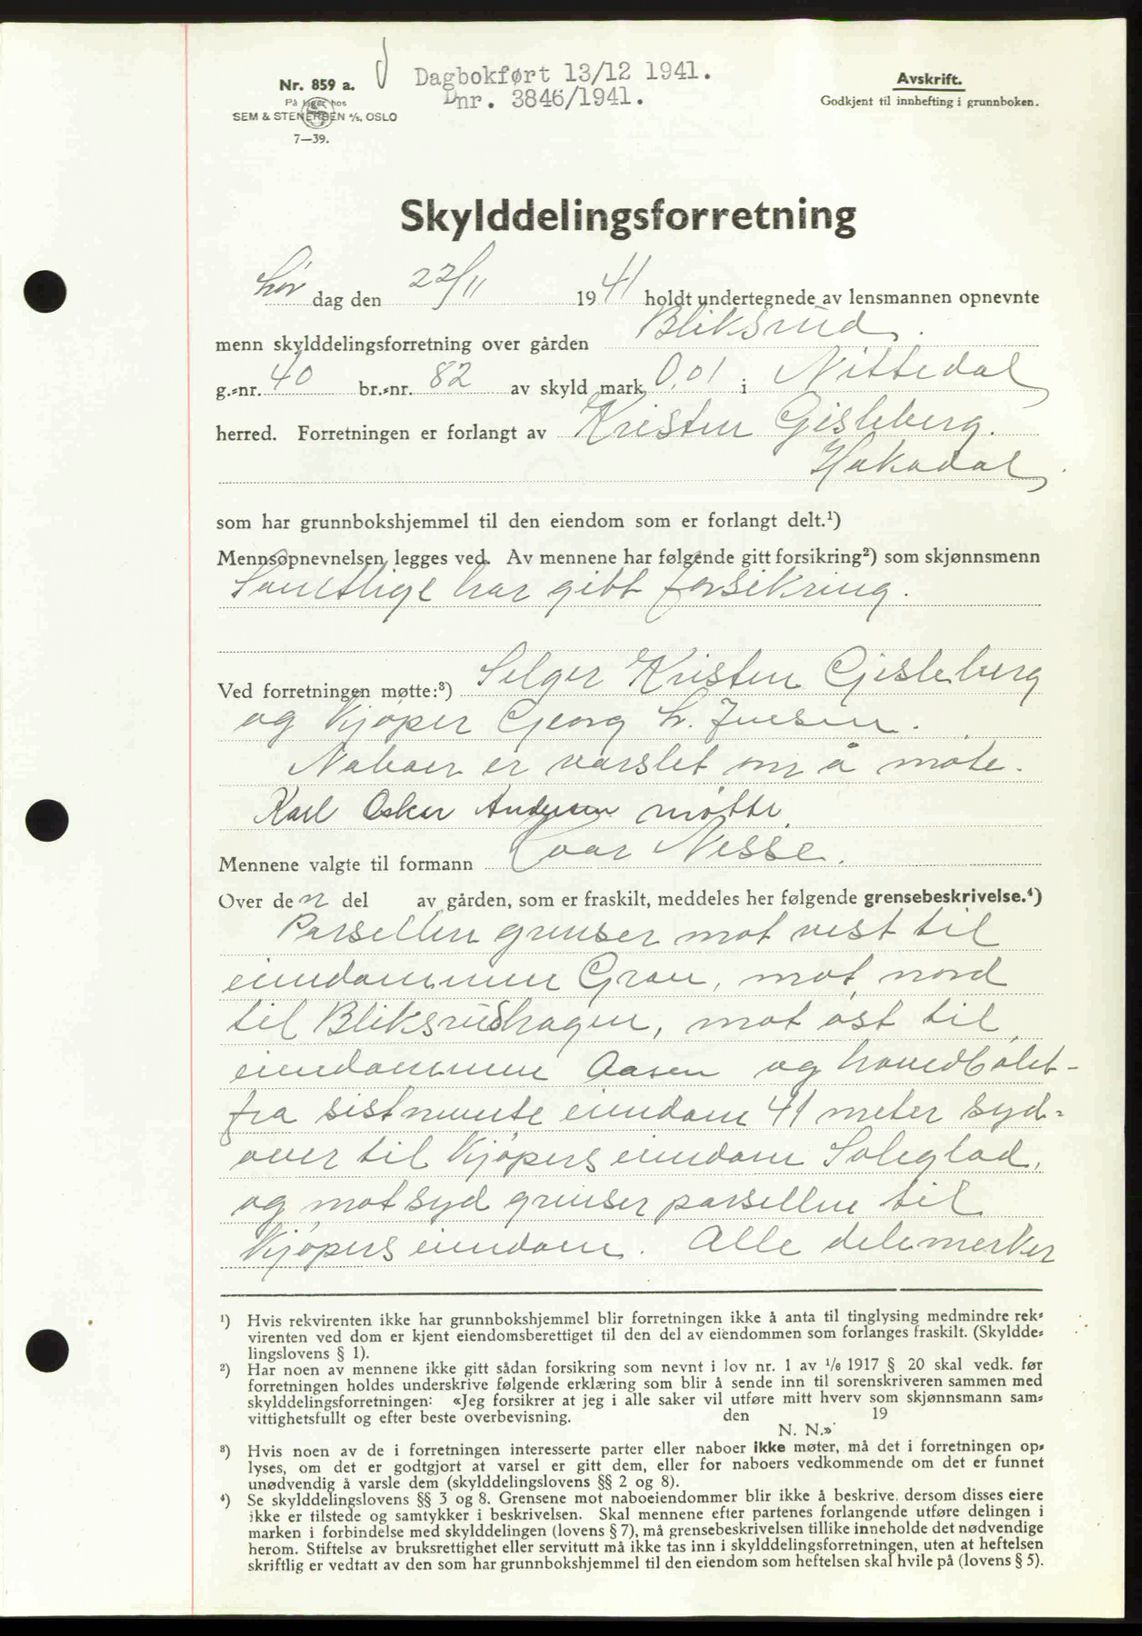 Nr. 859 a.
På lager hos
SEM & STENERSEN A/S, OSLO
7—39.
Dagbokført 13/12 1941.
Dnr. 3846/1941.
Avskrift.
Godkjent til innhefting i grunnboken.
Skylddelingsforretning
Lør dag den 22/11 1941 holdt undertegnede av lensmannen opnevnte
menn skylddelingsforretning over gården Bliksrud.
g.-nr. 40 br.-nr. 82 av skyld mark 0,01 i Nittedal
herred. Forretningen er forlangt av Kristen Gisleberg.
Hakadal
som har grunnbokshjemmel til den eiendom som er forlangt delt.¹)
Mennsopnevnelsen legges ved. Av mennene har følgende gitt forsikring²) som skjønnsmenn
Samtlige har gitt forsikring.
Ved forretningen møtte:³) Selger Kristen Gisleberg
og Kjøper Georg H. Juesen.
Naboer er varslet om å møte.
Karl Oskar Andersen møtte.
Mennene valgte til formann Ivar Nesse.
Over den del av gården, som er fraskilt, meddeles her følgende grensebeskrivelse.⁴)
Parsellen grenser mot vest til
eiendommen Gran, mot nord
til Bliksrudhagen, mot øst til
eiendommene Aasen og hovedbølet-
fra sistnevnte eiendom 41 meter syd-
over til Kjøpers eiendom Soleglad,
og mot syd grenser parsellen til
Kjøpers eiendom. Alle delemerker
¹) Hvis rekvirenten ikke har grunnbokshjemmel blir forretningen ikke å anta til tinglysing medmindre rek-
virenten ved dom er kjent eiendomsberettiget til den del av eiendommen som forlanges fraskilt. (Skyldde-
lingslovens § 1).
²) Har noen av mennene ikke gitt sådan forsikring som nevnt i lov nr. 1 av 1/6 1917 § 20 skal vedk. før
forretningen holdes underskrive følgende erklæring som blir å sende inn til sorenskriveren sammen med
skylddelingsforretningen: «Jeg forsikrer at jeg i alle saker vil utføre mitt hverv som skjønnsmann sam-
vittighetsfullt og efter beste overbevisning. den 19
N. N.»
³) Hvis noen av de i forretningen interesserte parter eller naboer ikke møter, må det i forretningen op-
lyses, om det er godtgjort at varsel er gitt dem, eller for naboers vedkommende om det er funnet
unødvendig å varsle dem (skylddelingslovens §§ 2 og 8).
⁴) Se skylddelingslovens §§ 3 og 8. Grensene mot naboeiendommer blir ikke å beskrive, dersom disses eiere
ikke er tilstede og samtykker i beskrivelsen. Skal mennene efter partenes forlangende utføre delingen i
marken i forbindelse med skylddelingen (lovens § 7), må grensebeskrivelsen tillike inneholde det nødvendige
herom. Stiftelse av bruksrettighet eller servitutt må ikke tas inn i skylddelingsforretningen, uten at heftelsen
skriftlig er vedtatt av den som har grunnbokshjemmel til den eiendom som heftelsen skal hvile på (lovens § 5).